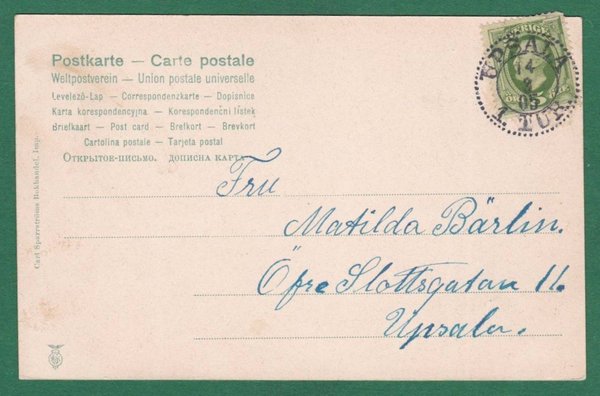 Postkarte — Carte postale
Weltpostverein — Union postale universelle
Levelező-Lap — Correspondenzkarte — Dopisnice
Karta korespondencyjna — Korespondenční lístek
Briefkaart — Post card — Brefkort — Brevkort
Cartolina postale — Tarjeta postal
Открытое-письмо. дописна карта
SVERIGE
UPSALA
14
05
1 TUR
Fru
Matilda Bärlin.
Öfre Slottsgatan 11.
Upsala.
Carl Sparrströms Bokhandel, Imp.